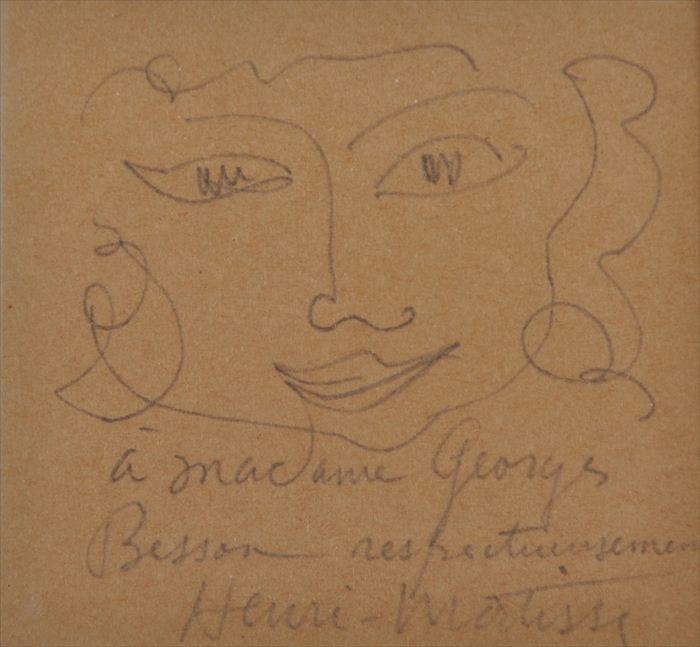 à madame Georges
Besson respectueusemen
Henri-Matisse